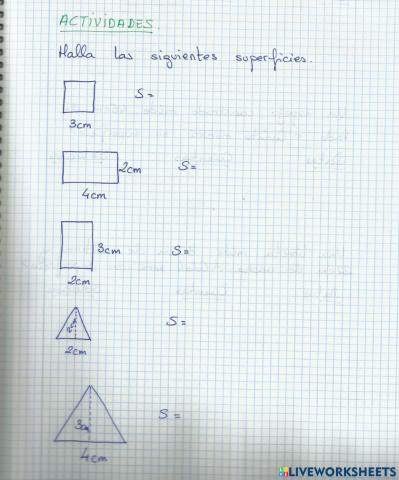 ACTIVIDADES.
Halla las siguientes superficies.
S=
3cm
2cm S=
4cm
3cm S=
2cm
2cm S=
2cm
3cm S=
4cm
LIVEWORKSHEETS